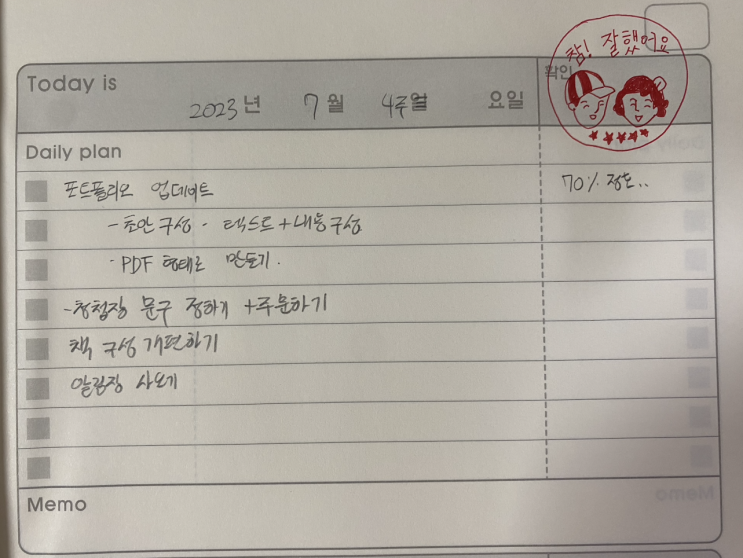 참! 잘했어요
Today is
확인
2023년 7월 4주일 요일
Daily plan
포트폴리오 업데이트 70% 정도..
- 초안구성 - 텍스트+내용구성
- PDF 형태로 만들기.
- 청첩장 문구 정하기 +주문하기
책 구성 개편하기
알림장 사오기
Memo